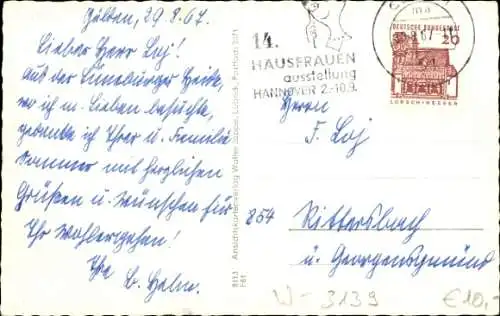 Hülben, 29.8.67.
Lieber Herr Loj!
Auf der Lüneburger Heide,
wo ich m. Lieben besuchte,
gedenke ich Ihrer u. Familie
Sommer mit herzlichen
Grüßen u. Wünschen für
Ihr Wohlergehen!
Ihre
14.
HAUSFRAUEN
ausstellung
HANNOVER 2.-10.9.
DEUTSCHE BUNDESPOST
20
LORSCH-HESSEN
Herrn
F. Loj
854 Rittersbach
ü. Georgensgmünd
Ansichtskartenverlag Walter
Lübeck, Postfach
8113
F61
W-3139
€10,-